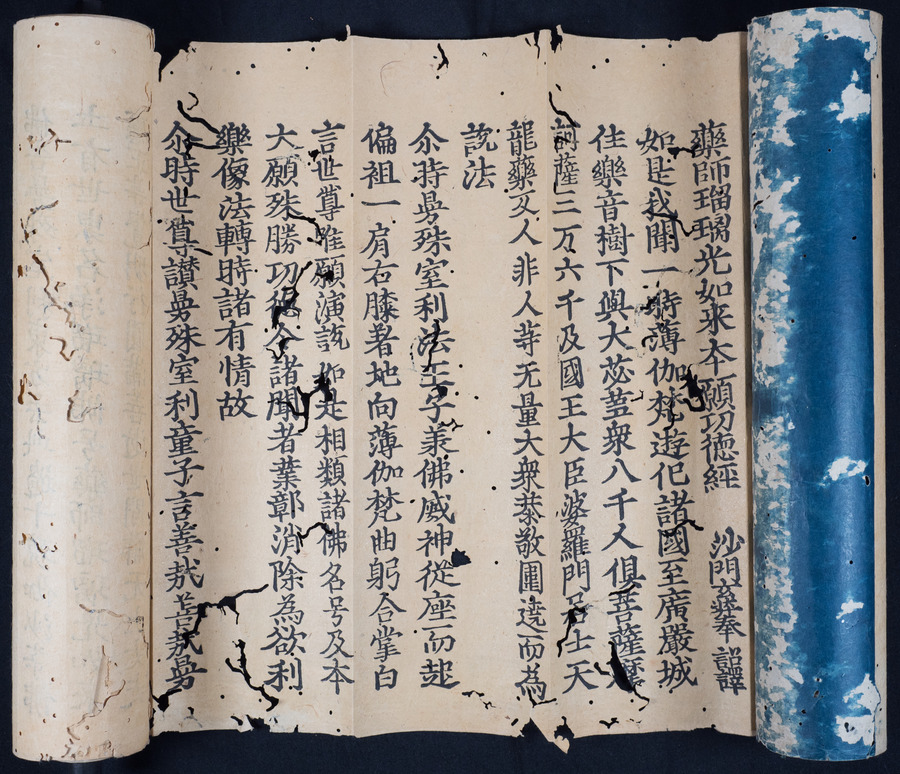 藥師瑠璃光如来本願功徳經 沙門 奉 詔譯
如是我聞一時薄伽梵遊化諸國至廣嚴城
住樂音樹下與大苾蒭衆八千人俱菩薩摩
訶薩三万六千及國王大臣婆羅門居士天
龍藥叉人非人等无量大衆恭敬圍遶而為
說法
尒時曼殊室利法王子羕佛威神從座而起
偏袒一肩右膝著地向薄伽梵曲躬合掌白
言世尊唯願演說如是相類諸佛名号及本
大願殊勝功德令諸聞者業鄣消除為欲利
樂像法轉時諸有情故
尒時世尊讃曼殊室利童子言善哉善哉曼